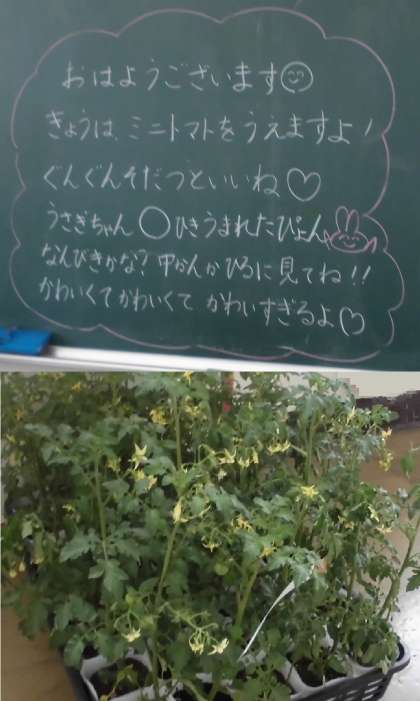 おはようございます
きょうは、ミニトマトをうえますよ!
ぐんぐんそだつといいね♡
うさぎちゃん〇ひきうまれたぴょん
なんびきかな?中かんかひろに見てね!!
かわいくてかわいくてかわいすぎるよ♡